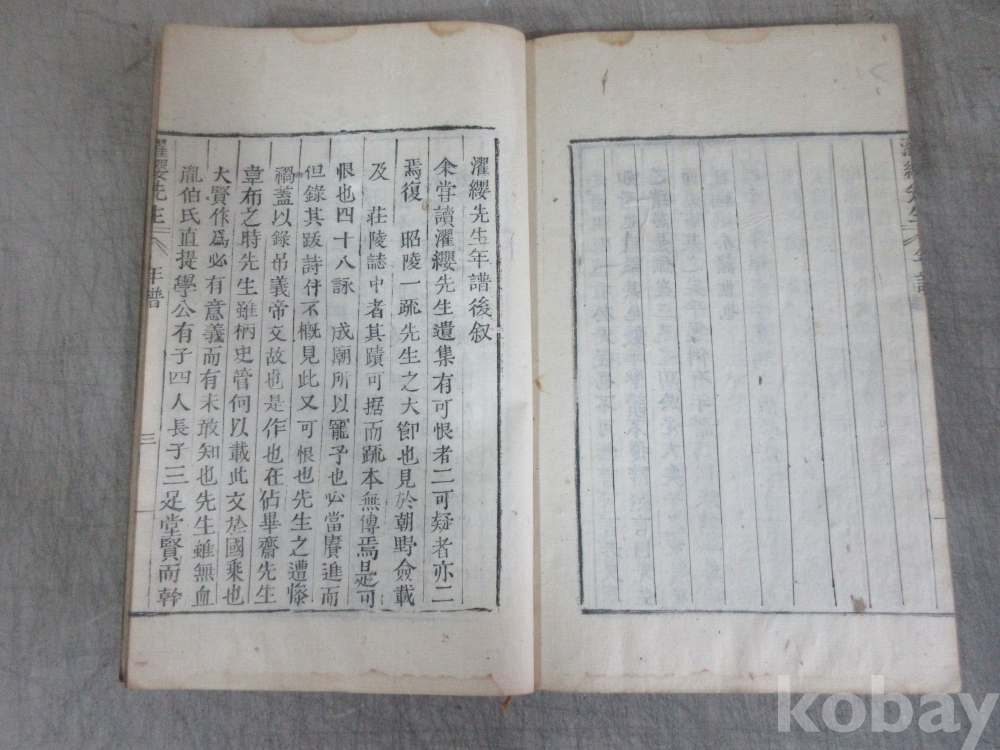 濯纓先生年譜後叙
余嘗讀濯纓先生遺集有可恨者二可疑者亦二
焉復 昭陵一疏先生之大節也見於朝野僉載
及 莊陵誌中者其蹟可据而疏本無傳焉是可
恨也四十八詠 成廟所以寵予也必當賡進而
但錄其跋詩什不槪見此又可恨也先生之遭慘
禍盖以錄吊義帝文故也是作也在佔畢齋先生
韋布之時先生雖柄史管何以載此文於國乘也
大賢作爲必有意義而有未敢知也先生雖無血
胤伯氏直提學公有子四人長子三足堂賢而幹
濯纓先生 年譜 三
kobay